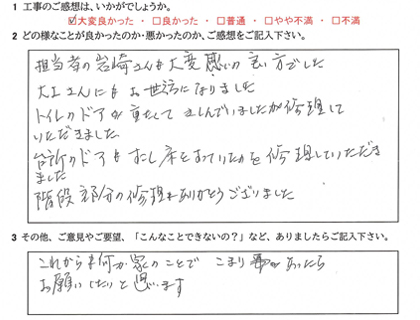 1 工事のご感想は、いかがでしょうか。
☑大変良かった ・ □良かった ・ □普通 ・ □やや不満 ・ □不満
2 どの様なことが良かったのか・悪かったのか、ご感想をご記入下さい。
担当者の岩崎さんも大変感じの良い方でした
大工さんにもお世話になりました
トイレのドアが重たくて していましたが修理して
いただきました
台所のドアもすこし床を っていたのを修理していただき
ました
階段部分の修理もありがとうございました
3 その他、ご意見やご要望、「こんなことできないの?」など、ありましたらご記入下さい。
これからも何か家のことで こまり事があったら
お願いしたいと思います